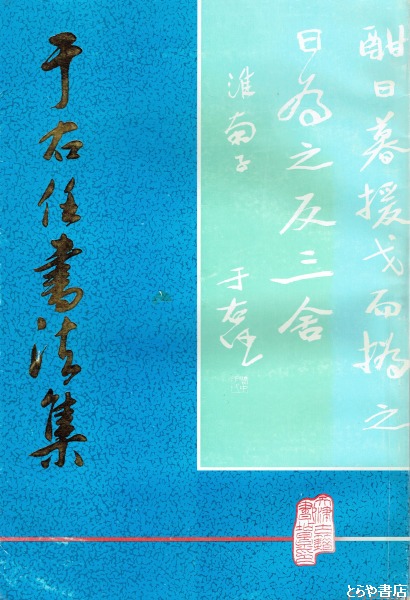 于右任書法集
酣日暮援戈而撝之
日為之反三舍
淮南子
于右任
とらや書店